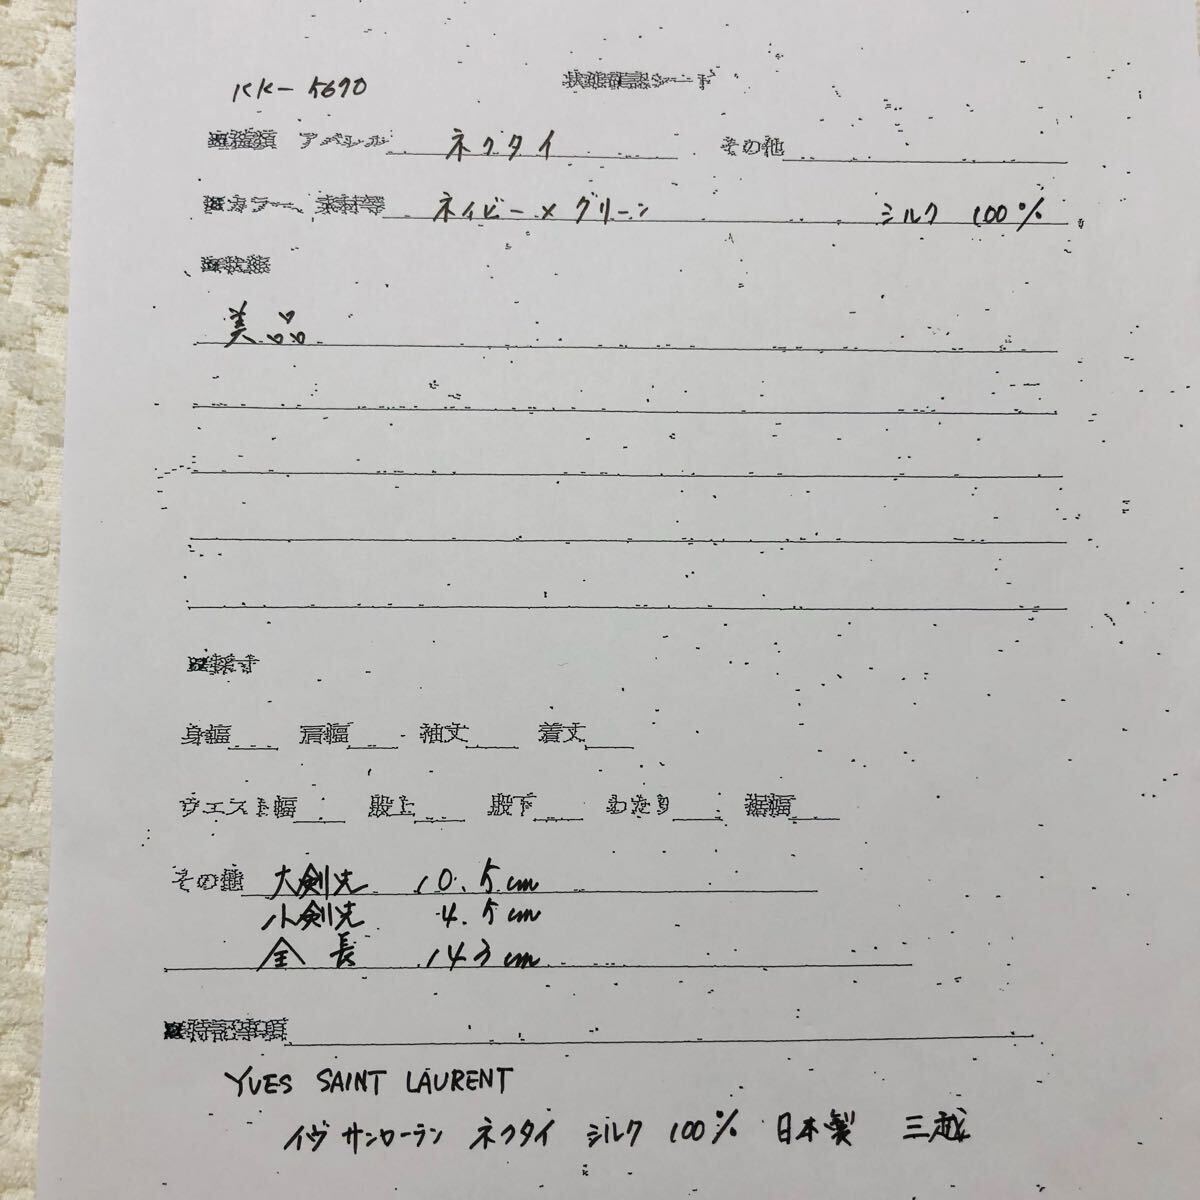 KK-5690
状態確認シート
※種類 アパレル ネクタイ その他
※カラー、素材等 ネイビー×グリーン シルク 100%
※状態
美品
※採寸
身幅 肩幅 袖丈 着丈
ウエスト幅 股上 股下 わたり 裾幅
その他 大剣先 10.5cm
小剣先 4.5cm
全長 143cm
※特記事項
YVES SAINT LAURENT
イヴサンローラン ネクタイ シルク 100% 日本製 三越